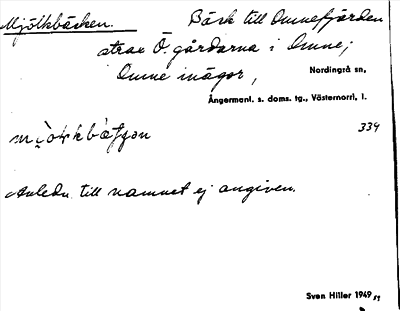 Mjölkbäcken. Bäck till Omnefjärden
strax Ö. gårdarna i Omne;
Omne inägor, Nordingrå sn,
Ångermanl. s. doms. tg., Västernorrl. l.
334
Anledn. till namnet ej angiven.
Sven Hiller 1949